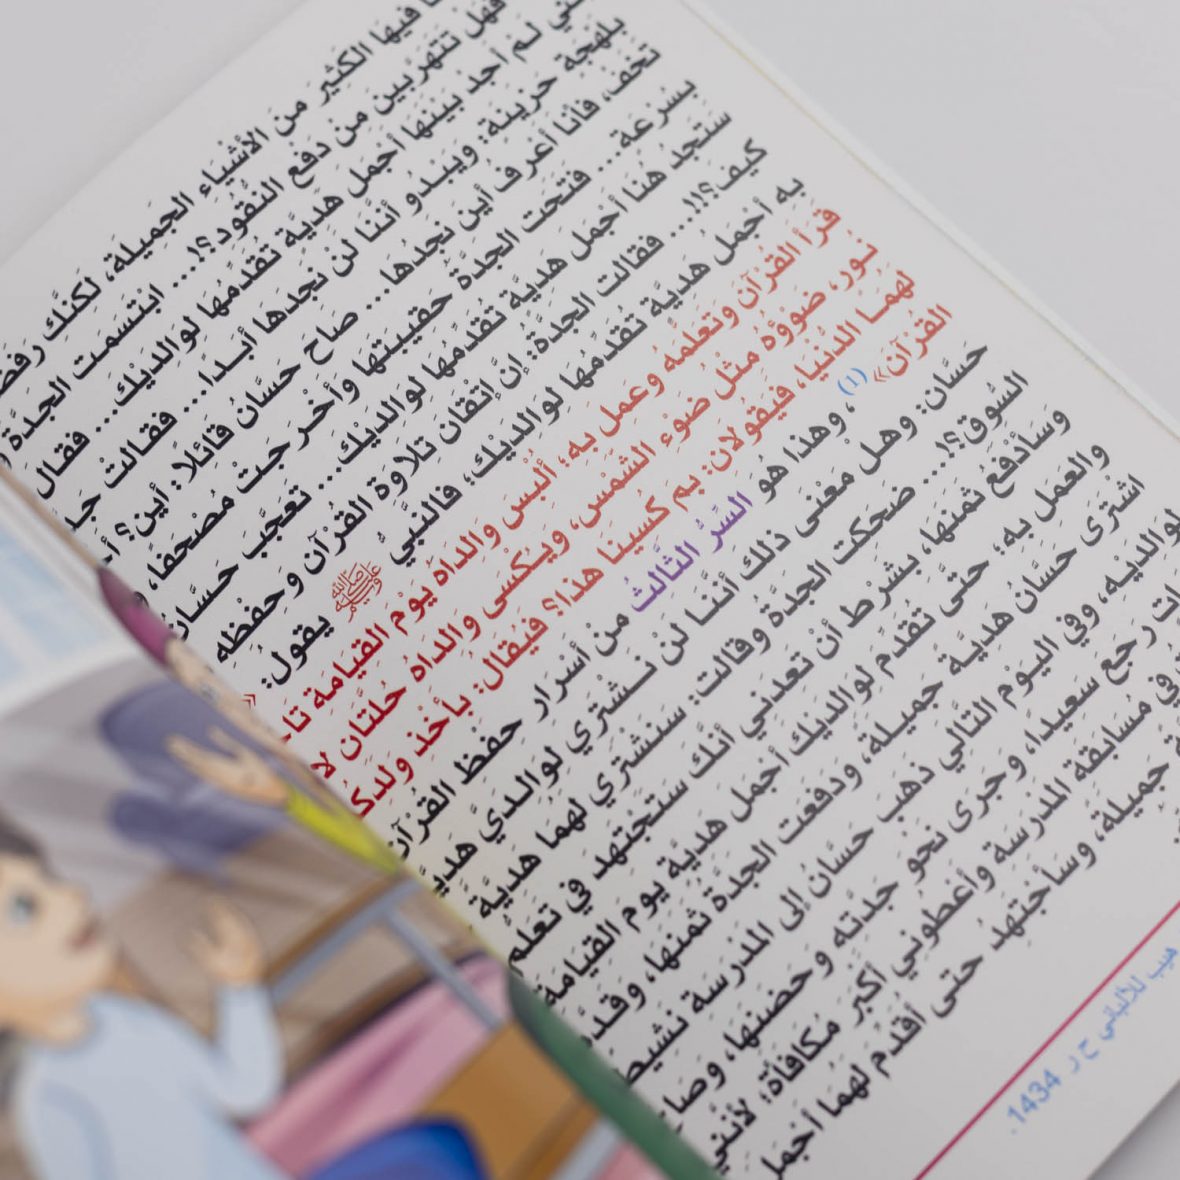 فيها الكَثِيرَ مِنَ الأَشْيَاءِ الجَمِيلَةِ، لَكِنَّكِ
فَهَلْ تَتَهَرَّبِينَ مِنْ دَفْعِ النُّقُودِ؟!... ابْتَسَمَتِ الجَدَّةُ
لَمْ أَجِدْ بَيْنَهَا أَجْمَلَ هَدِيَّةٍ تُقَدِّمُهَا لِوَالِدَيْكَ... فَقَالَ
بِلَهْجَةٍ حَزِينَةٍ: وَيَبْدُو أَنَّنَا لَنْ نَجِدَهَا أَبَدًا... فَقَالَتْ
تَخَفْ، فَأَنَا أَعْرِفُ أَيْنَ نَجِدُهَا... صَاحَ حَسَّانُ قَائِلًا: أَيْنَ؟
بِسُرْعَةٍ... فَتَحَتِ الجَدَّةُ حَقِيبَتَهَا وَأَخْرَجَتْ مُصْحَفًا،
سَتَجِدُ هُنَا أَجْمَلَ هَدِيَّةٍ تُقَدِّمُهَا لِوَالِدَيْكَ... تَعَجَّبَ حَسَّانُ
كَيْفَ؟!!... فَقَالَتِ الجَدَّةُ: إِنَّ إِتْقَانَ تِلَاوَةِ القُرْآنِ وَحِفْظِهِ
بِهِ أَجْمَلُ هَدِيَّةٍ تُقَدِّمُهَا لِوَالِدَيْكَ، فَالنَّبِيُّ ﷺ يَقُولُ: «
قَرَأَ القُرْآنَ وَتَعَلَّمَهُ وَعَمِلَ بِهِ؛ أُلْبِسَ وَالِدَاهُ يَوْمَ القِيَامَةِ
نُورٍ، ضَوْؤُهُ مِثْلُ ضَوْءِ الشَّمْسِ، وَيُكْسَى وَالِدَاهُ حُلَّتَانِ لَا
لَهُمَا الدُّنْيَا، فَيَقُولَانِ: بِمَ كُسِينَا هَذَا؟ فَيُقَالُ: بِأَخْذِ وَلَدِكُ
القُرْآنَ» (1)، وَهَذَا هُوَ السِّرُّ الثَّالِثُ مِنْ أَسْرَارِ حِفْظِ القُرْآنِ
حَسَّانُ: وَهَلْ مَعْنَى ذَلِكَ أَنَّنَا لَنْ نَشْتَرِيَ لِوَالِدَيَّ
السُّوقِ؟!... ضَحِكَتِ الجَدَّةُ وَقَالَتْ: سَنَشْتَرِي لَهُمَا هَدِيَّةً
وَسَأَدْفَعُ ثَمَنَهَا، بِشَرْطِ أَنْ تَعِدَنِي أَنَّكَ سَتَجْتَهِدُ فِي تَعَلُّمِ
وَالعَمَلِ بِهِ؛ حَتَّى تُقَدِّمَ لِوَالِدَيْكَ أَجْمَلَ هَدِيَّةٍ يَوْمَ القِيَامَةِ
اشْتَرَى حَسَّانُ هَدِيَّةً جَمِيلَةً، وَدَفَعَتِ الجَدَّةُ ثَمَنَهَا،
لِوَالِدَيْهِ، وَفِي اليَوْمِ التَّالِي ذَهَبَ حَسَّانُ إِلَى المَدْرَسَةِ
رَجَعَ سَعِيدًا، وَجَرَى نَحْوَ جَدَّتِهِ وَحَضَنَهَا،
فِي مُسَابَقَةِ المَدْرَسَةِ وَأَعْطَوْنِي أَكْبَرَ مُكَافَأَةٍ؛ لِأَنَّنِي
جَمِيلَةٌ، وَسَأَجْتَهِدُ حَتَّى أُقَدِّمَ لَهُمَا أَجْمَلَ
للألباني ح ر 1434.